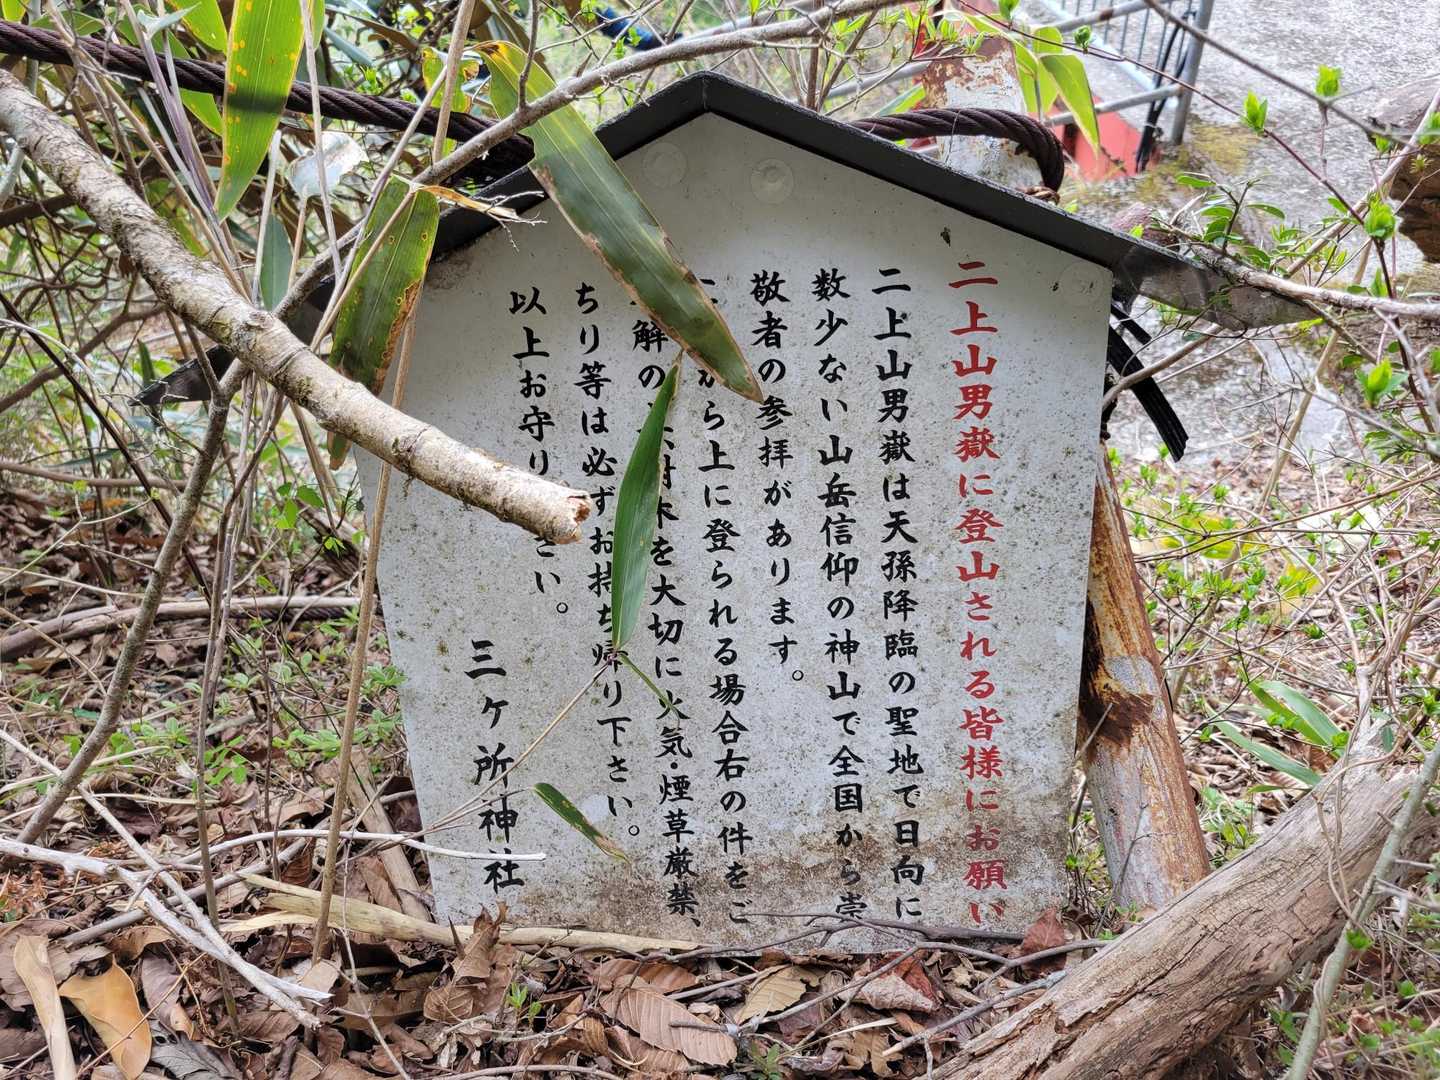 二上山男嶽に登山される皆様にお願い
二上山男嶽は天孫降臨の聖地で日向に
数少ない山岳信仰の神山で全国から崇
敬者の参拝があります。
から上に登られる場合右の件をご
解の 樹木を大切に火気・煙草厳禁、
ちり等は必ずお持ち帰り下さい。
以上お守り さい。
三ヶ所神社